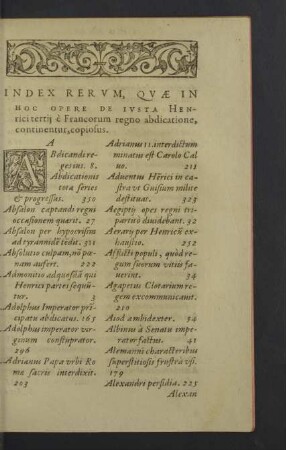 INDEX RERVM, QVÆ IN
HOC OPERE DE IVSTA HEN-
rici tertij è Francorum regno abdicatione,
continentur, copiosus.
A
ABdicandi re-
ges onus. 8.
Abdicationis
tota series
& progressus. 350
Absalon captandi regni
occasionem quærit. 27
Absalon per hypocrisim
ad tyrannidē tēdit. 311
Absolutio culpam, nō pœ-
nam aufert. 222
Admonitio ad quosdā qui
Henrici partes sequū-
tur. 3
Adolphus Imperator præ-
cipatu abdicatus. 165
Adolphus imperator vir-
ginum constuprator.
296
Adrianus Papa vrbi Ro
mæ sacris interdixit.
203
Adrianus 11. interdictum
minatus est Carolo Cal
uo. 213
Aduentu Hērici in ca-
stra vt Guisium milite
destituat. 325
Aegiptij opes regni tri-
partitò diuidebant. 32
Aerary per Henricū ex-
haustio. 252
Afflicti populi, quòd re-
gum suorum vitiis fa-
uerint. 34
Agapetus Clotarium re-
gem excommunicauit.
210
Aiod ambidexter. 54
Albinus à Senatu impe-
rator factus. 41
Alemanni characteribus
superstitiosis frustrà vsi.
179
Alexandri perfidia. 225
Alexan